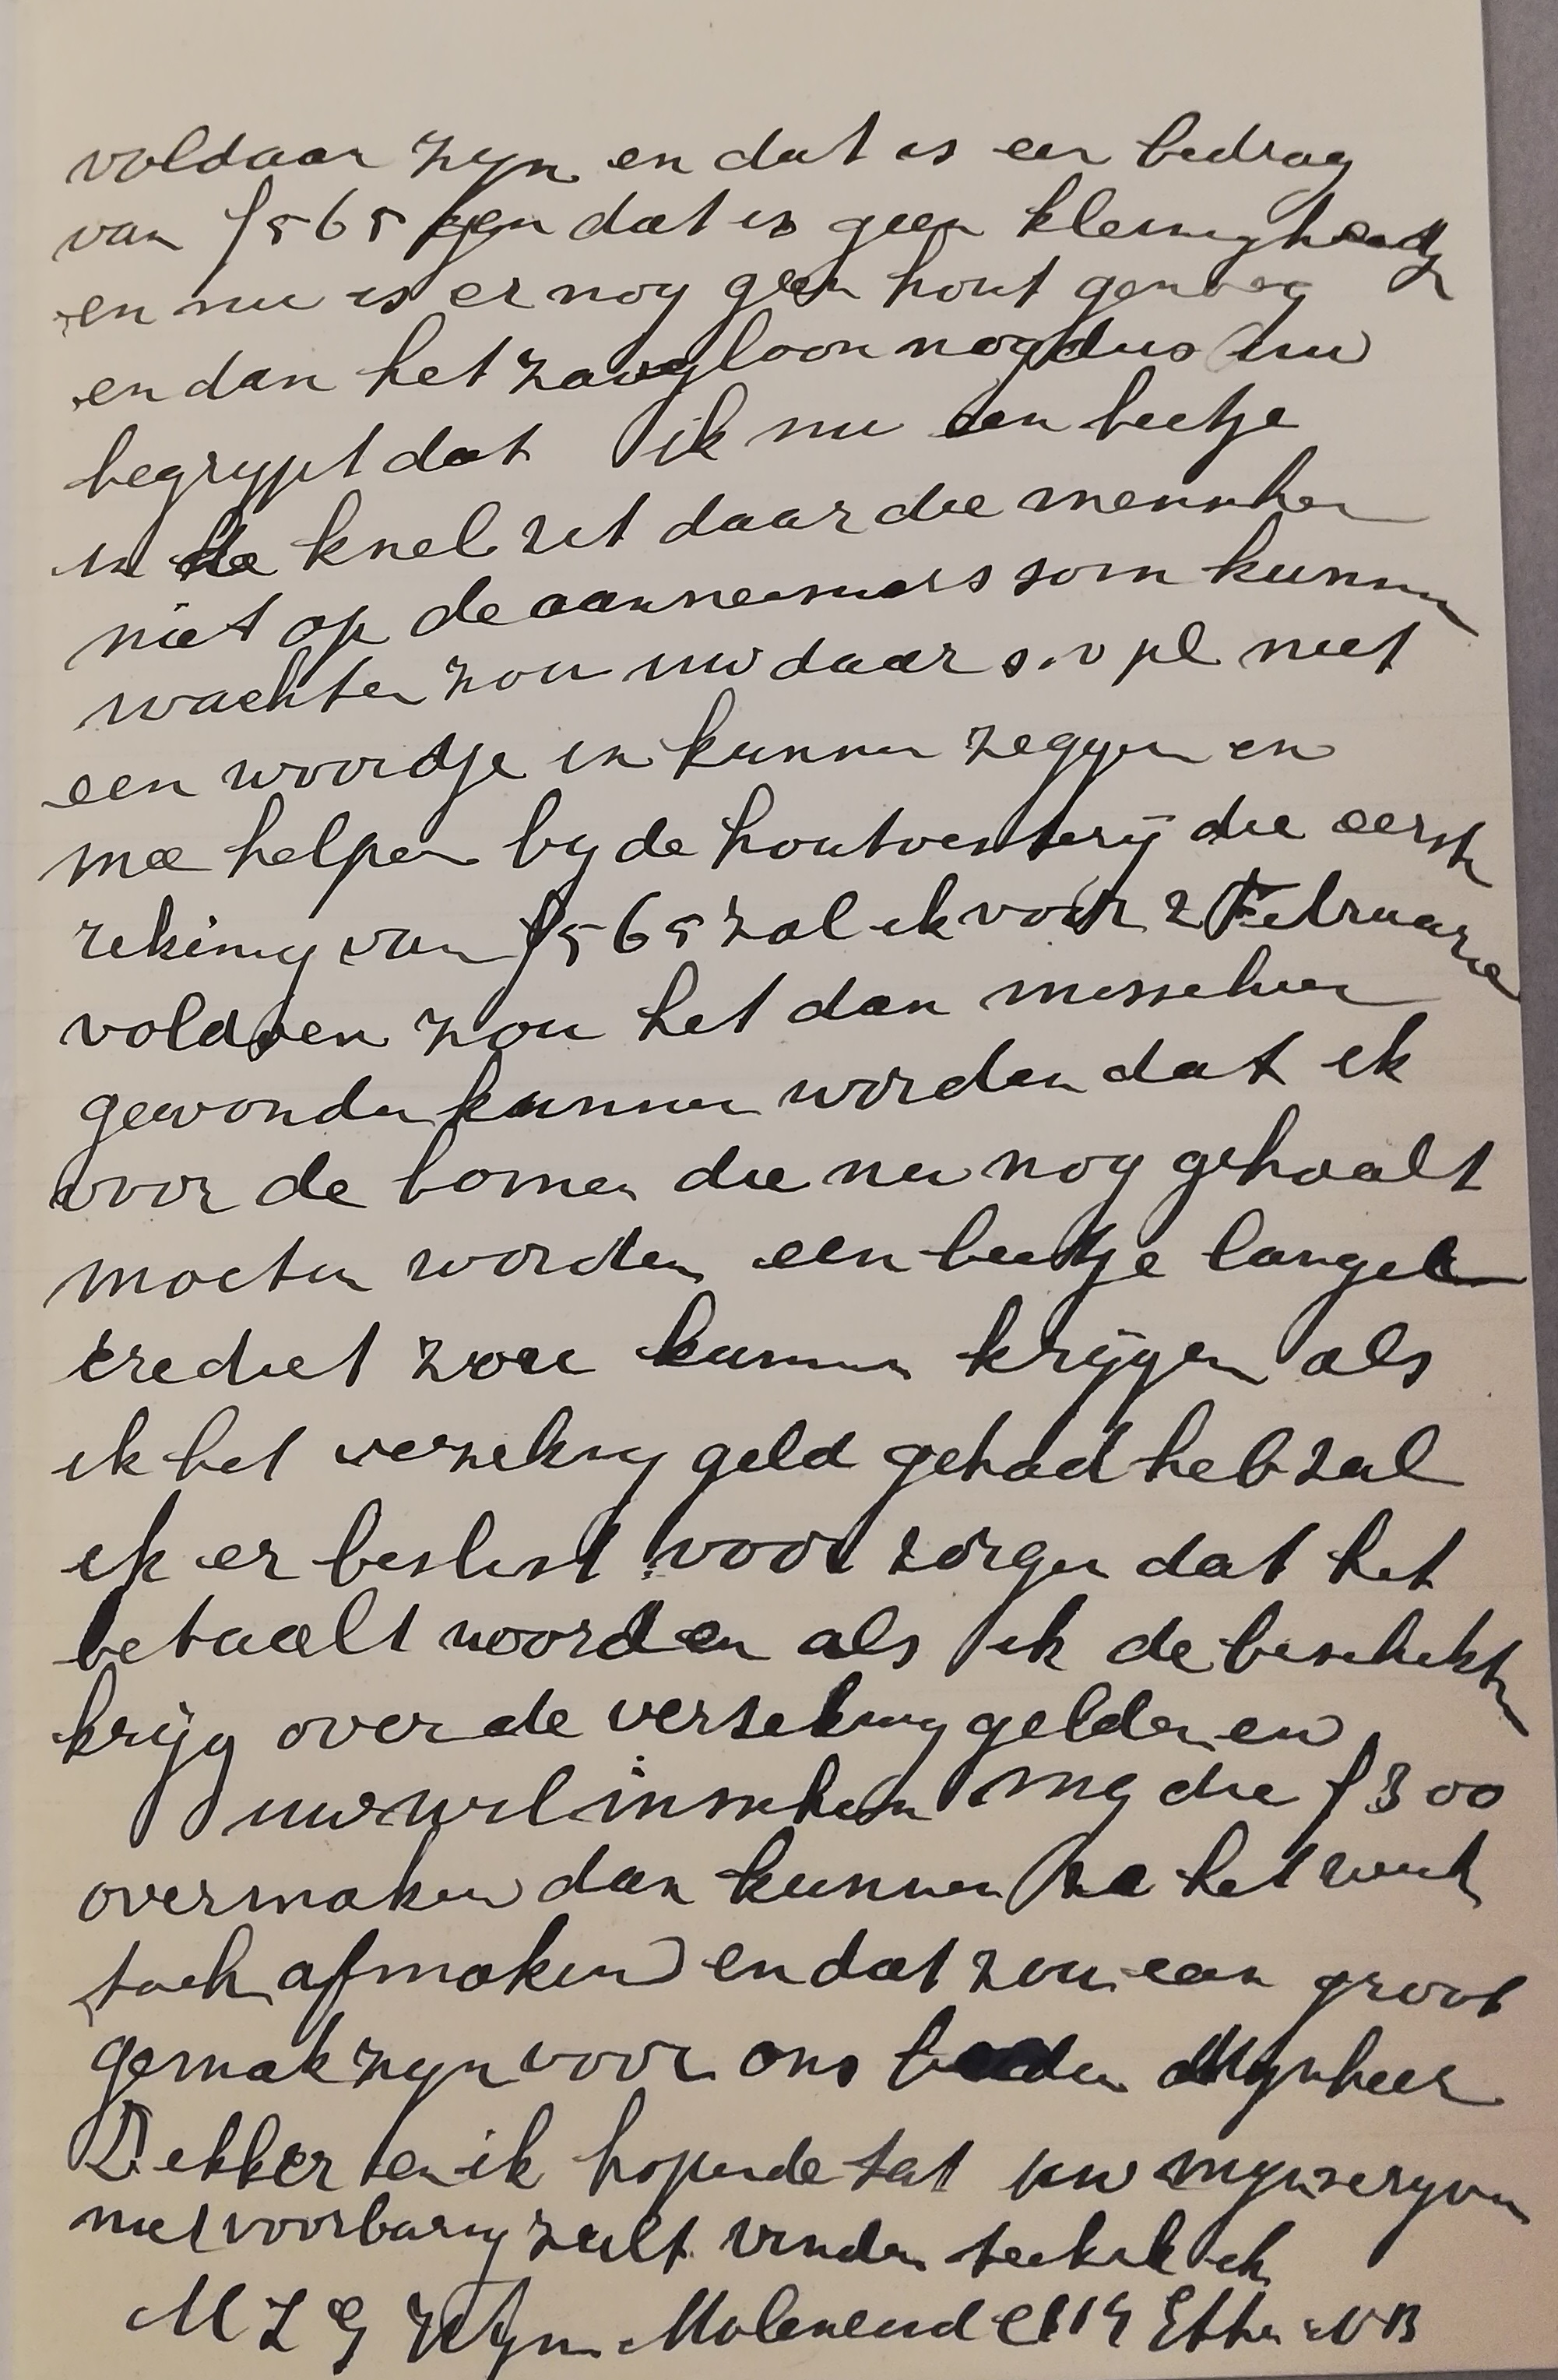 voldaan zyn en dat is een bedrag
van f 565 en dat is geen kleinigheid
en nu is er nog geen hout genoeg
en dan het zaagloon nog dus uw
begrypt dat ik nu een beetje
in de knel zit daar die menschen
niet op de aannemers som kunnen
wachten zou uw daar s.v pl niet
een woordje in kunnen zeggen en
mee helpen by de houtvesterij die eerste
rekinig van f 565 zal ik voor 2 Februarie
voldoen zou het dan messchien
gevonden kunnen worden dat ik
voor de bomen die nu nog gehaalt
moeten worden een beetje langer
crediet zou kunnen krijgen als
ik het verzeking geld gehad heb zal
ik er beslist voor zorgen dat het
betaalt woorden als ik de beschikken
krijg over de verseking gelden en
uw wil inschen my die f 300
overmaken dan kunnen ze het werk
toch afmaken en dat zou een groot
gemak zyn voor ons beiden Mynheer
Dekker en ik hopende tat uw myn
niet voorbarig zult vinden teeken ik
M Z G Molenend Etten NB